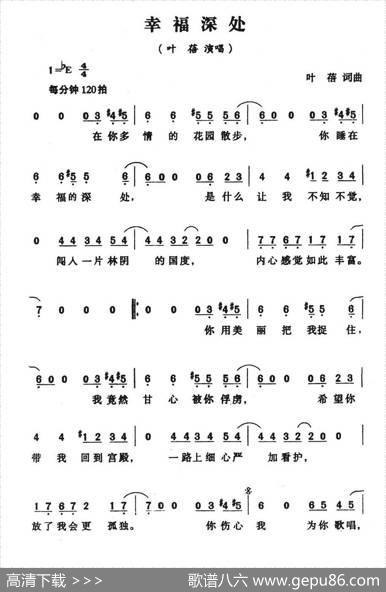 幸福深处
(叶 蓓 演唱)
1=♭E 4/4
叶 蓓 词曲
每分钟120拍
0 0 03 #4#5 6 6 #5 556 6000 03 #4#5
在你多 情 的 花园散步， 你睡在
6 6#55 6 6000 06223 4 4 #1234
幸 福的深 处， 是什么 让 我 不知不觉，
0 443454 443220 77677 1717
闯入一片林阴 的国度， 内心感觉如此 丰富。
7 0 0 0 0 0 03 #4#5 6 6 #5 56
你用美 丽 把 我捉 住，
6000 03 #4#5 6 6 #5556 6000 0623
我竟然 甘 心 被你俘虏， 希望你
4 4 #1234 0 443454 443220 0
带 我 回到宫殿， 一路上细心严 加看护，
17672 217 1000 03 #4#5 6 0 0565
放了我会更 孤独。 你伤心我 为你歌唱，
高清下载 >>>
歌谱八六 www.gepu86.com